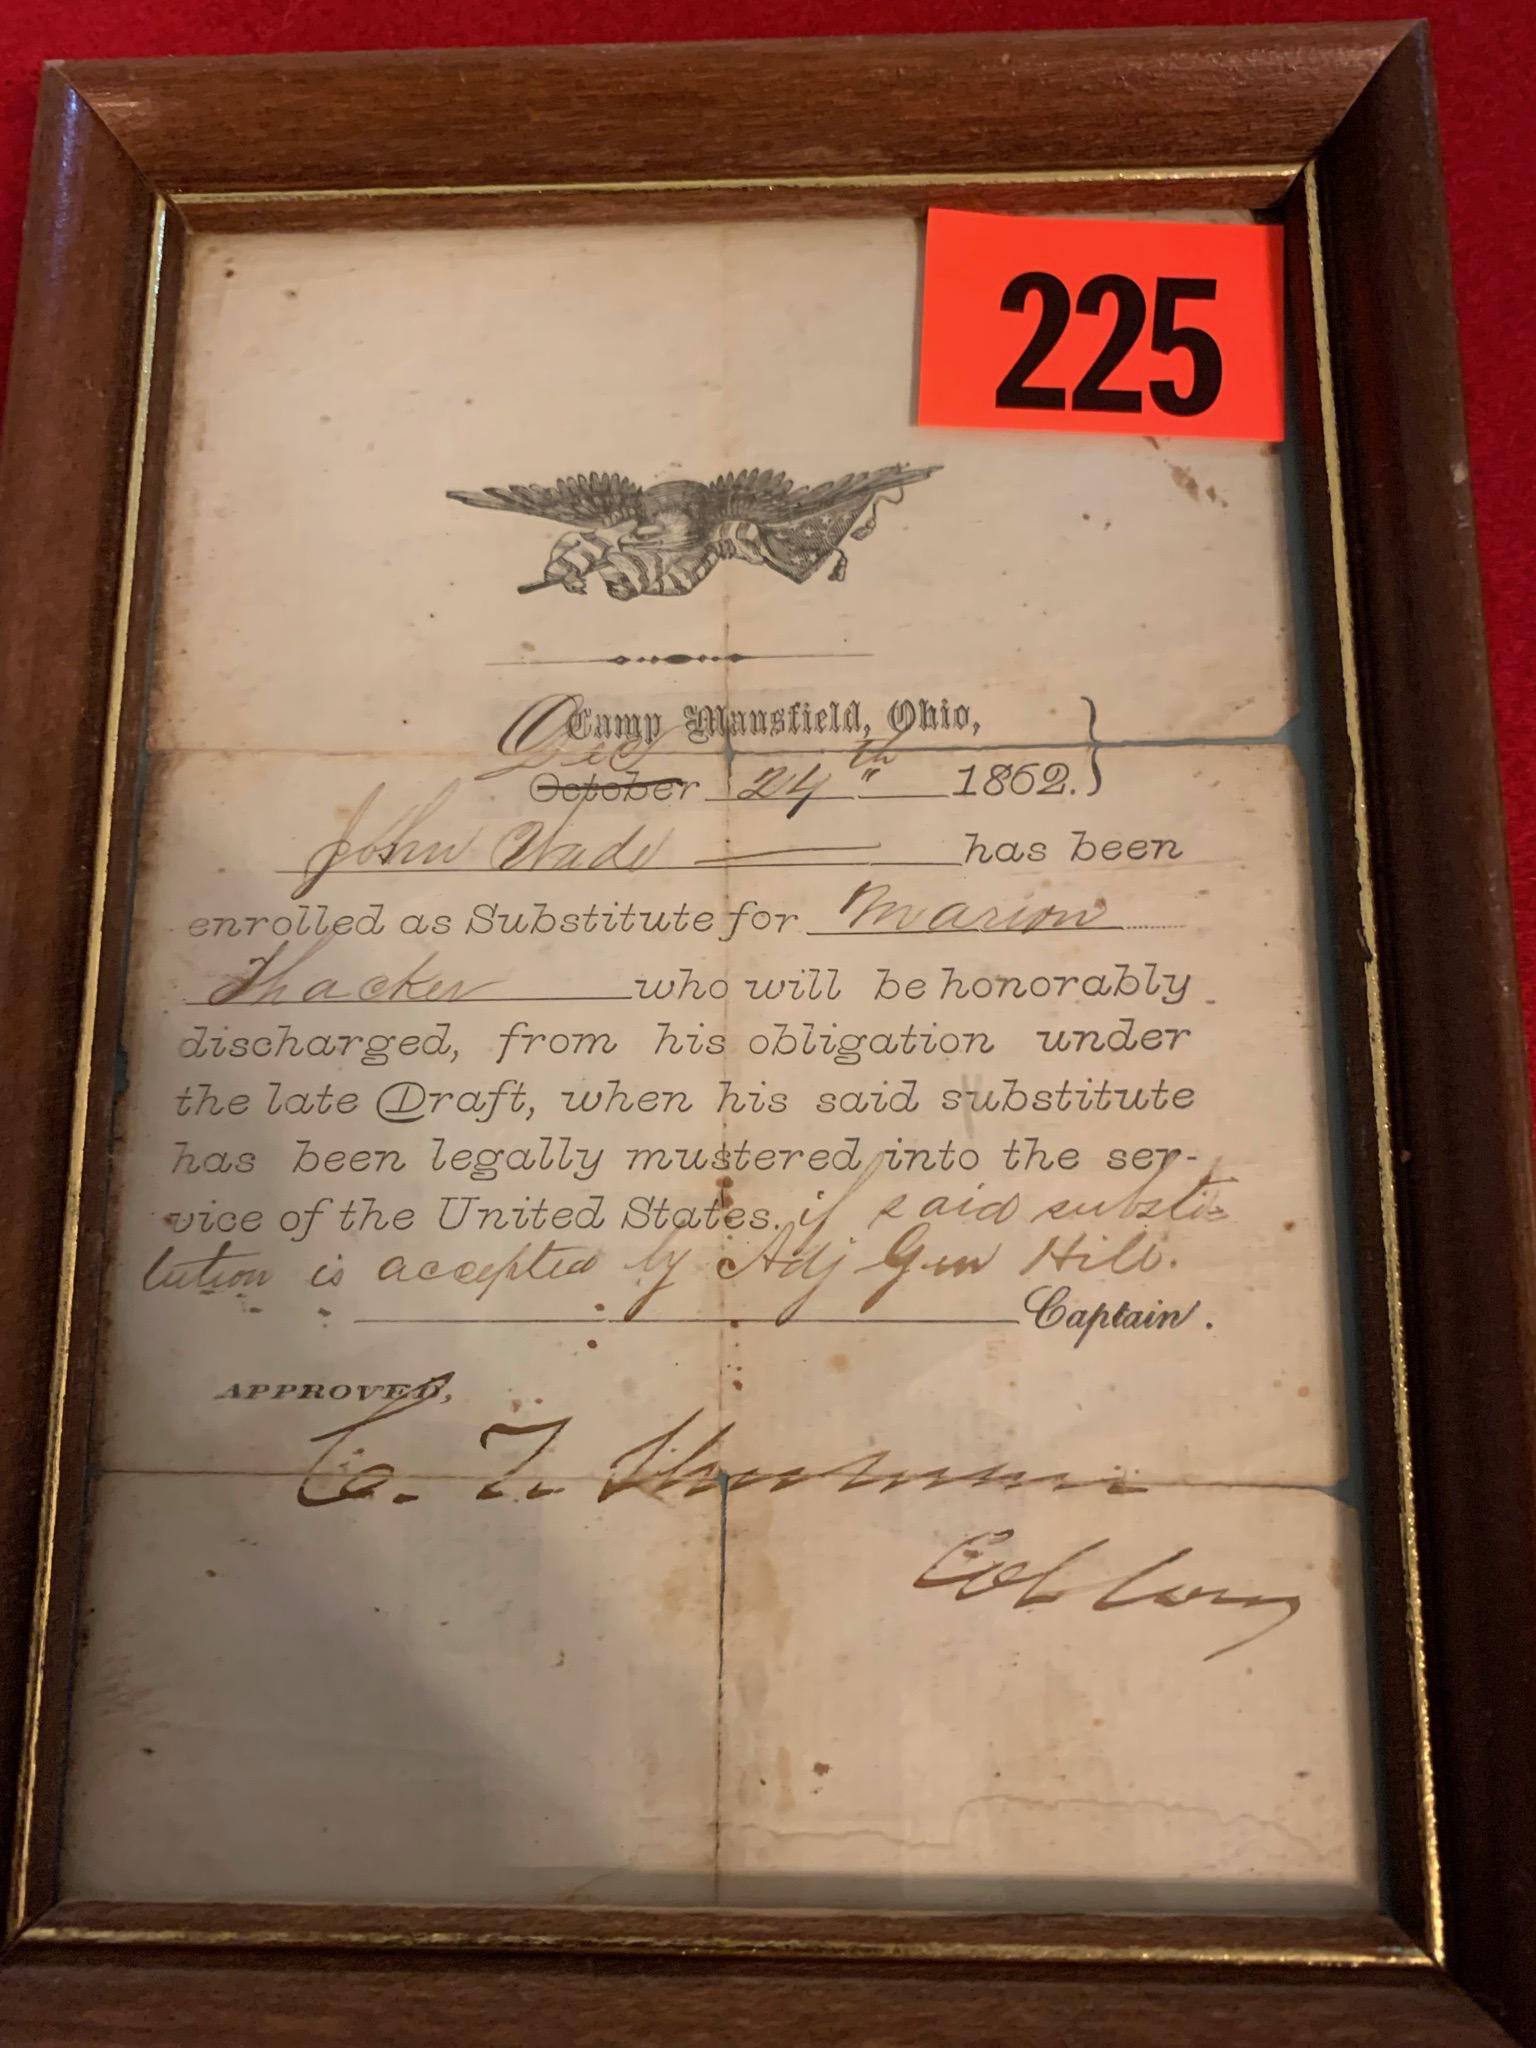 225
Camp Mansfield, Ohio,
Dec
October 24th 1862.
John Wade has been
enrolled as Substitute for Marion
Thacker who will be honorably
discharged, from his obligation under
the late Draft, when his said substitute
has been legally mustered into the ser-
vice of the United States. if said substi-
tution is accepted by Adj Gen Hill.
Captain.
APPROVED,
C. T. Sherman
Col Com